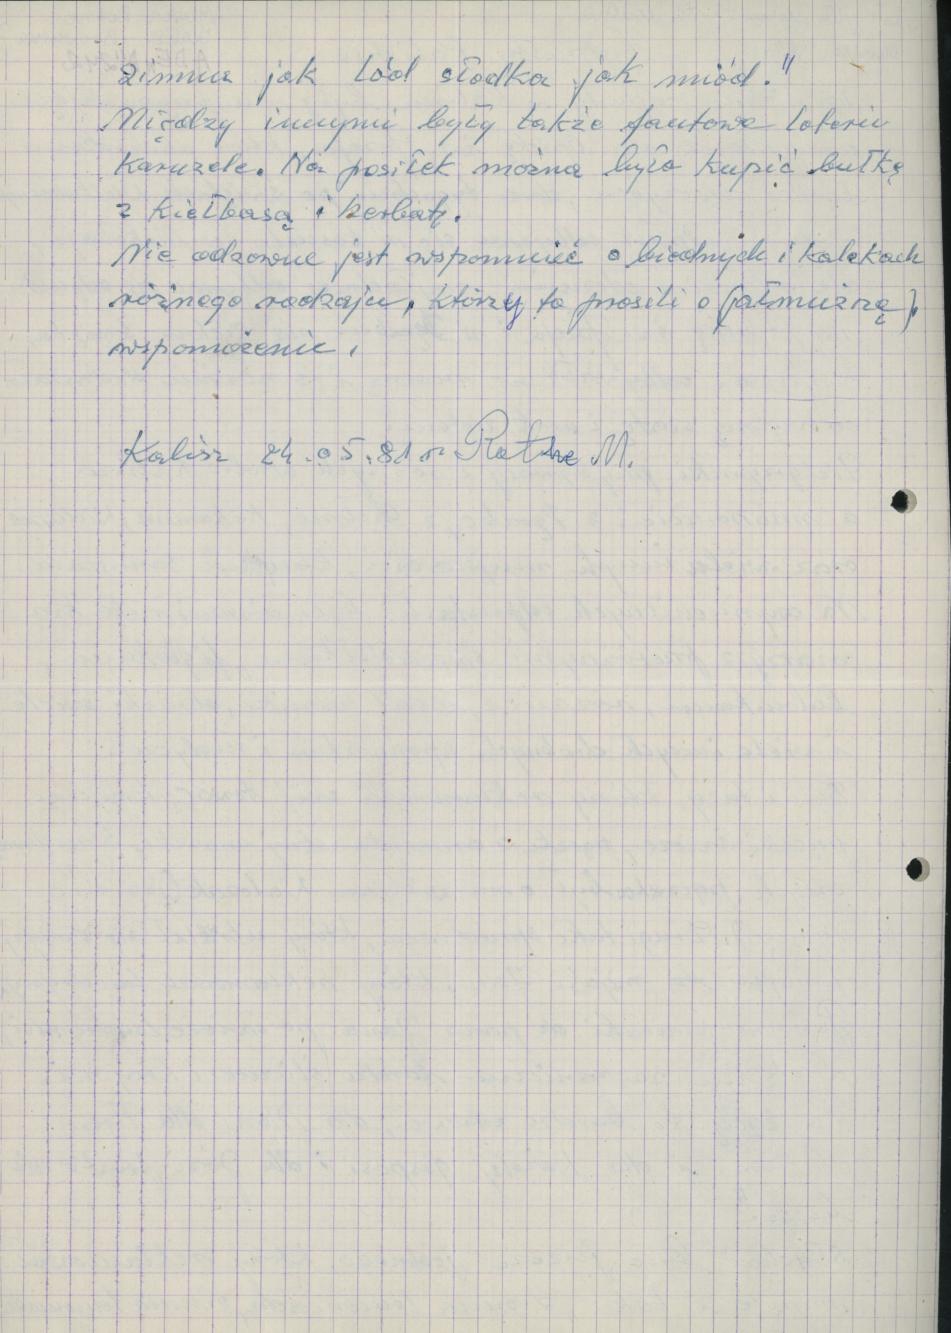 zimna jak lód słodka jak miód."
Między innymi były także fantowe loterie
Karuzele. Na posiłek można było kupić bułkę
z kiełbasą i herbatę.
Nie odzowne jest wspomnieć o biednych i kalekach
różnego rodzaju, którzy to prosili o (jałmużnę),
wspomożenie.
Kalisz 24.05.81 r M.